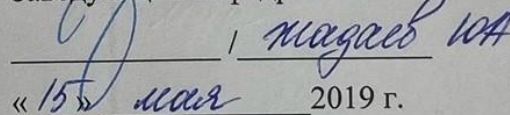 / Жадаев ЮА
« 15 » мая 2019 г.